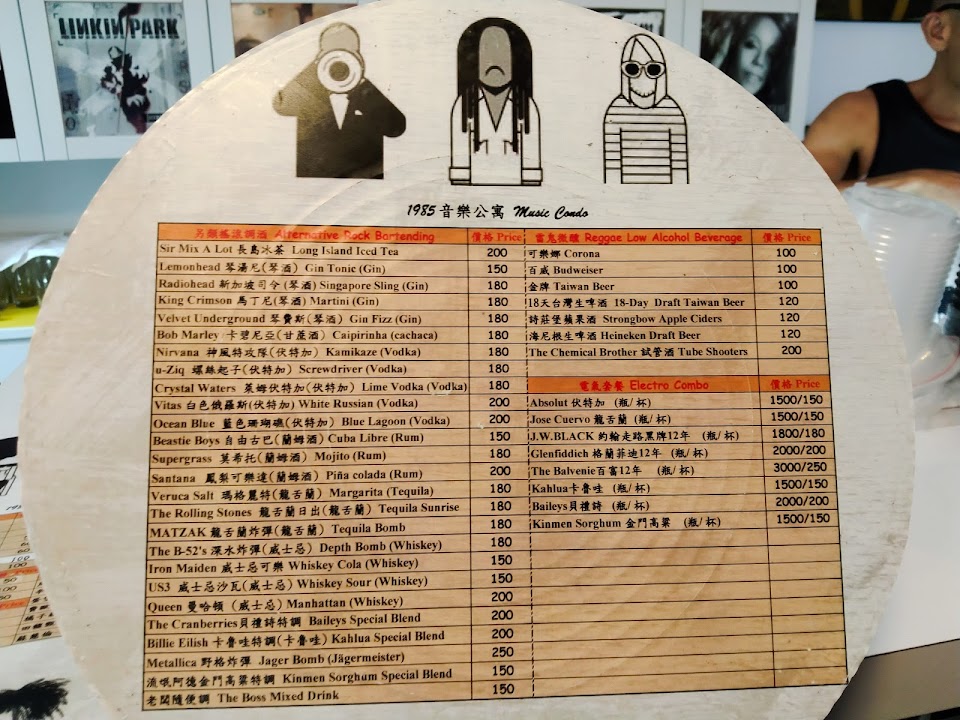 LINKIN PARK
1985 音樂公寓 Music Condo
另類搖滾調酒 Alternative Rock Bartending 價格 Price
Sir Mix A Lot 長島冰茶 Long Island Iced Tea 200
Lemonhead 琴湯尼(琴酒) Gin Tonic (Gin) 150
Radiohead 新加坡司令(琴酒) Singapore Sling (Gin) 180
King Crimson 馬丁尼(琴酒) Martini (Gin) 180
Velvet Underground 琴費斯(琴酒) Gin Fizz (Gin) 180
Bob Marley 卡碧尼亞(甘蔗酒) Caipirinha (cachaca) 180
Nirvana 神風特攻隊(伏特加) Kamikaze (Vodka) 180
u-Ziq 螺絲起子(伏特加) Screwdriver (Vodka) 180
Crystal Waters 萊姆伏特加(伏特加) Lime Vodka (Vodka) 180
Vitas 白色俄羅斯(伏特加) White Russian (Vodka) 200
Ocean Blue 藍色珊瑚礁(伏特加) Blue Lagoon (Vodka) 200
Beastie Boys 自由古巴(蘭姆酒) Cuba Libre (Rum) 150
Supergrass 莫希托(蘭姆酒) Mojito (Rum) 180
Santana 鳳梨可樂達(蘭姆酒) Piña colada (Rum) 200
Veruca Salt 瑪格麗特(龍舌蘭) Margarita (Tequila) 180
The Rolling Stones 龍舌蘭日出(龍舌蘭) Tequila Sunrise 180
MATZAK 龍舌蘭炸彈(龍舌蘭) Tequila Bomb 180
The B-52's 深水炸彈(威士忌) Depth Bomb (Whiskey) 180
Iron Maiden 威士忌可樂 Whiskey Cola (Whiskey) 150
US3 威士忌沙瓦(威士忌) Whiskey Sour (Whiskey) 150
Queen 曼哈頓 (威士忌) Manhattan (Whiskey) 200
The Cranberries貝禮詩特調 Baileys Special Blend 200
Billie Eilish 卡魯哇特調(卡魯哇) Kahlua Special Blend 200
Metallica 野格炸彈 Jager Bomb (Jägermeister) 250
流氓阿德金門高粱特調 Kinmen Sorghum Special Blend 150
老闆隨便調 The Boss Mixed Drink 150
雷鬼微醺 Reggae Low Alcohol Beverage 價格 Price
可樂娜 Corona 100
百威 Budweiser 100
金牌 Taiwan Beer 100
18天台灣生啤酒 18-Day Draft Taiwan Beer 120
詩莊堡蘋果酒 Strongbow Apple Ciders 120
海尼根生啤酒 Heineken Draft Beer 120
The Chemical Brother 試管酒 Tube Shooters 200
電氣套餐 Electro Combo 價格 Price
Absolut 伏特加 (瓶/杯) 1500/150
Jose Cuervo 龍舌蘭 (瓶/杯) 1500/150
J.W.BLACK 約翰走路黑牌12年 (瓶/杯) 1800/180
Glenfiddich 格蘭菲迪12年 (瓶/杯) 2000/200
The Balvenie百富12年 (瓶/杯) 3000/250
Kahlua卡魯哇 (瓶/杯) 1500/150
Baileys貝禮詩 (瓶/杯) 2000/200
Kinmen Sorghum 金門高粱 (瓶/杯) 1500/150